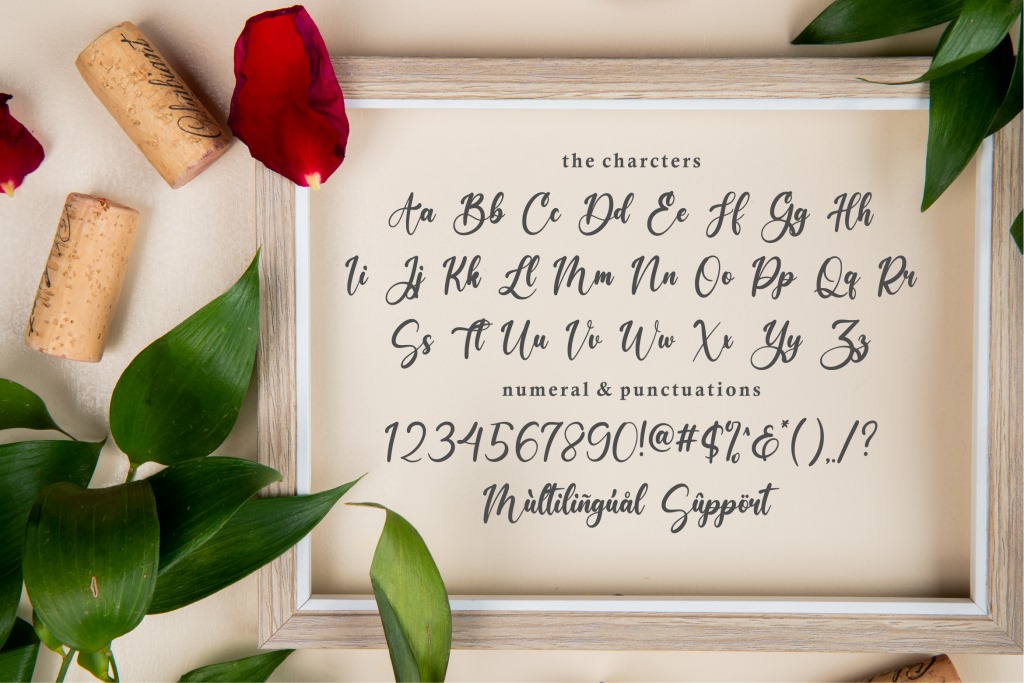 the charcters
Aa Bb Cc Dd Ee Ff Gg Hh
Ii Jj Kk Ll Mm Nn Oo Pp Qq Rr
Ss Tt Uu Vv Ww Xx Yy Zz
numeral & punctuations
1234567890!@#$%^&*(),./?
Mùltiliñgúål Sûppört